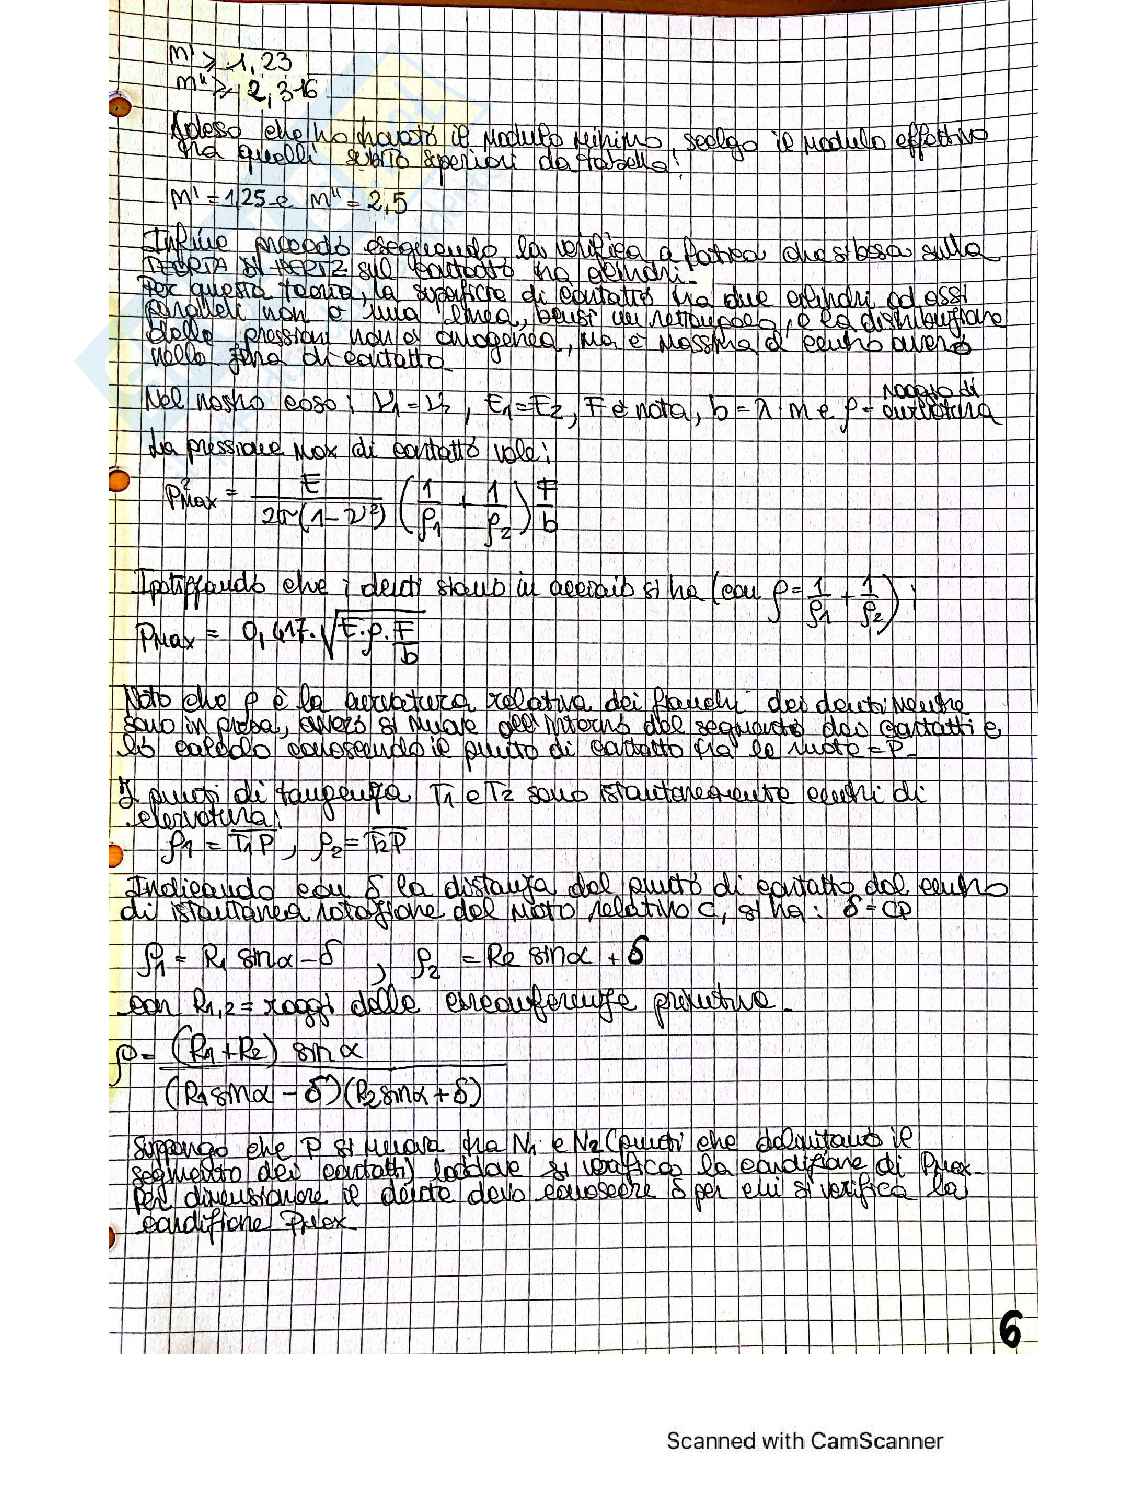 m' ≥ 1,23
m'' ≥ 2,316
Adesso che ho trovato il modulo minimo, scelgo il modulo effettivo
tra quelli subito superiori da tabella:
m' = 1,25 e m'' = 2,5
Infine procedo eseguendo la verifica a fatica che si basa sulla
TEORIA DI HERTZ sul contatto tra cilindri.
Per questa teoria, la superficie di contatto tra due cilindri ad assi
paralleli non è una linea, bensì un rettangolo, e la distribuzione
delle pressioni non è omogenea, ma è massima al centro ovvero
nella zona di contatto.
Nel nostro caso: ν1=ν2, E1=E2, F è nota, b = λ m e ρ = raggio di curvatura
La pressione max di contatto vale:
P²max = E / 2π(1-ν²) (1/ρ1 + 1/ρ2) F/b
Ipotizzando che i denti siano in acciaio si ha (con ρ = 1/ρ1 + 1/ρ2):
Pmax = 0,417·√E·ρ·F/b
Noto che ρ è la curvatura relativa dei fianchi dei denti mentre
sono in presa, ovvero si muove all'interno del segmento dei contatti e
lo calcolo conoscendo il punto di contatto fra le ruote = P.
I punti di tangenza T1 e T2 sono istantaneamente centri di
curvatura:
ρ1 = T1P, ρ2 = T2P
Indicando con δ la distanza del punto di contatto dal centro
di istantanea rotazione del moto relativo C, si ha: δ = CP
ρ1 = R1 sinα - δ , ρ2 = R2 sinα + δ
con R1,2 = raggi delle circonferenze primitive.
ρ = (R1+R2) sinα / (R1 sinα - δ)(R2 sinα + δ)
Suppongo che P si muova tra N1 e N2 (punti che delimitano il
segmento dei contatti) laddove si verifica la condizione di Pmax.
Per dimensionare il dente devo conoscere δ per cui si verifica la
condizione Pmax.
6
Scanned with CamScanner